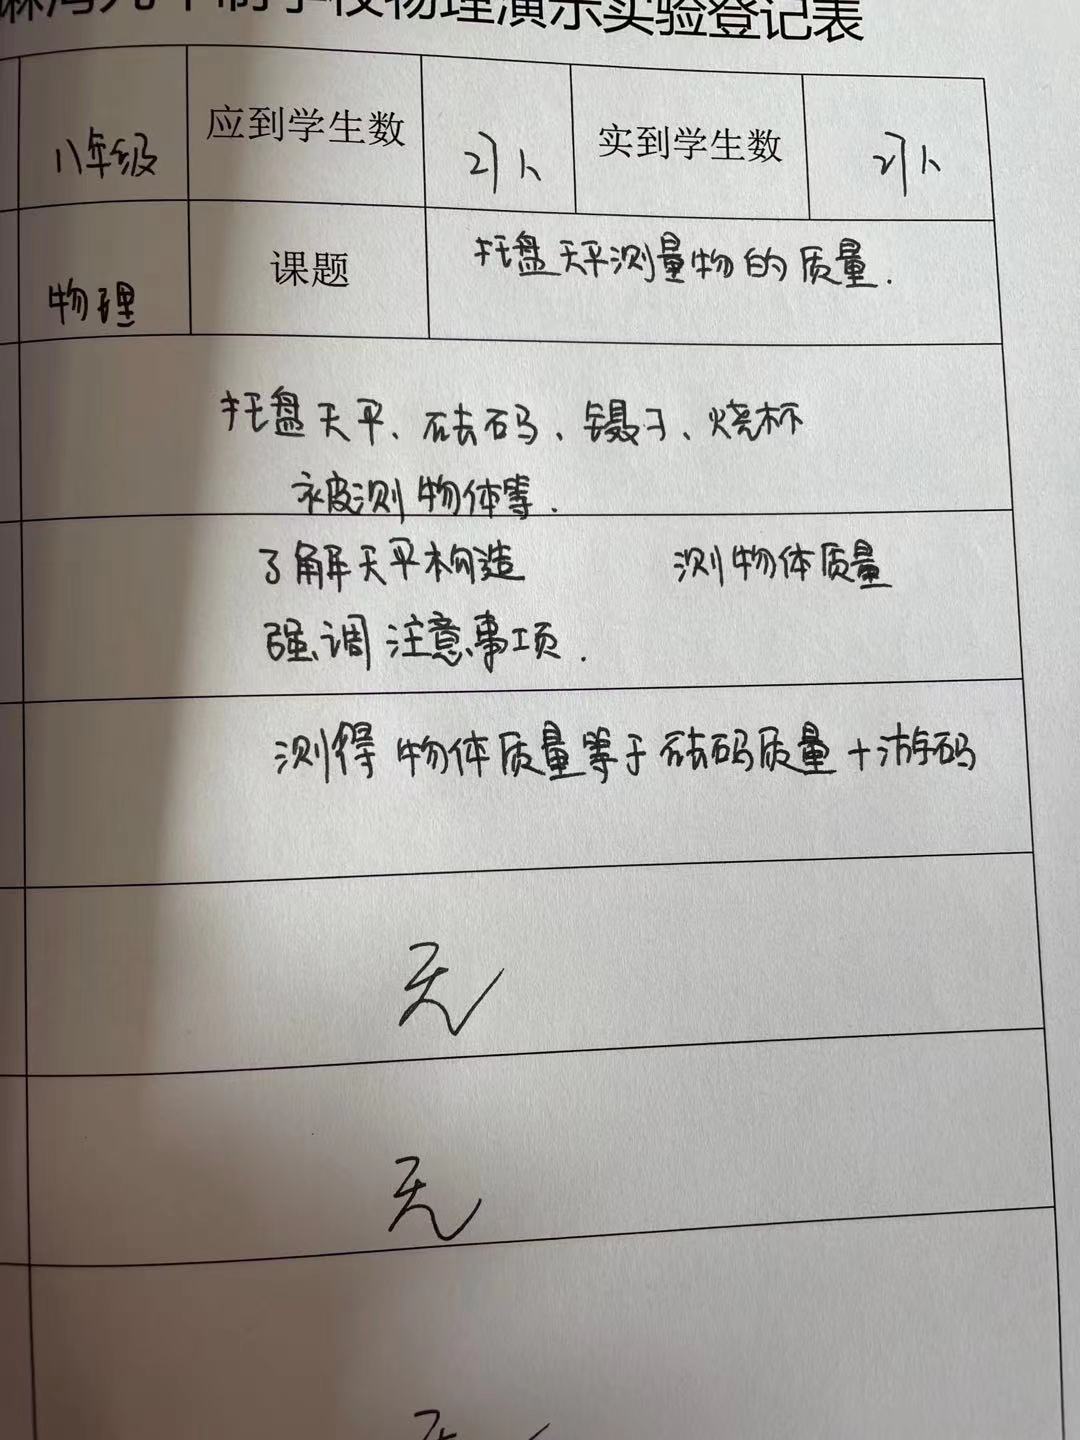 九年制学校物理演示实验登记表
八年级 应到学生数 27人 实到学生数 27人
物理 课题 托盘天平测量物的质量.
托盘天平、砝码、镊子、烧杯
被测物体等.
了解天平构造 测物体质量
强调注意事项.
测得物体质量等于砝码质量+游码
无
无
无